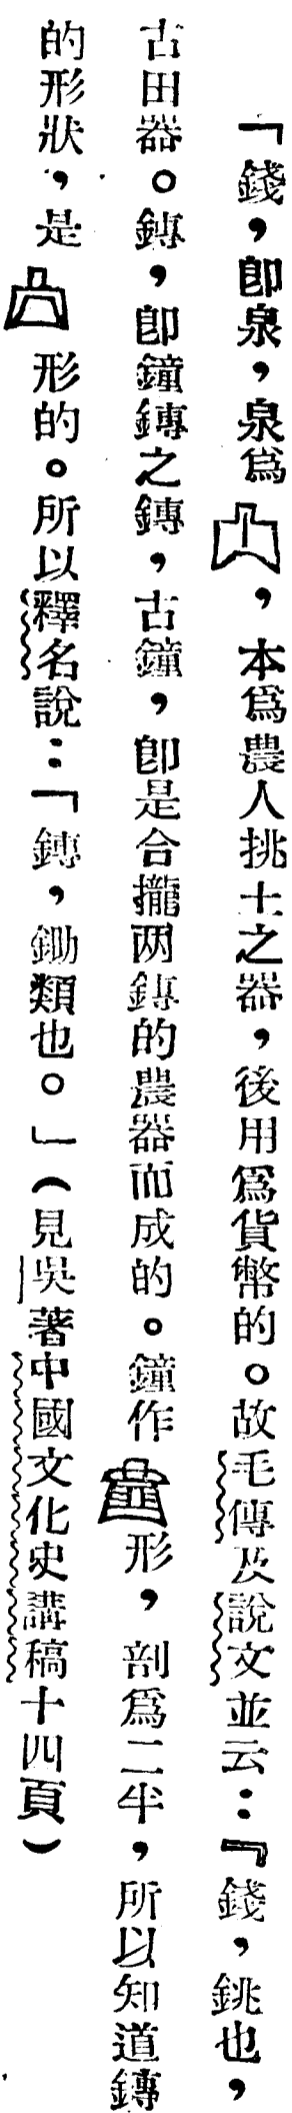 「錢，卽泉，泉爲，本爲農人挑土之器，後用爲貨幣的。故毛傳及說文並云：『錢，銚也，
古田器。鎛，卽鐘鎛之鎛，古鐘，卽是合攏两鎛的農器而成的。鐘作形，剖爲二半，所以知道鎛
的形狀，是形的。所以釋名說：「鎛，鋤類也。」（見吳著中國文化史講稿十四頁）